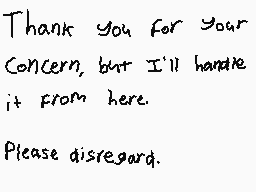 Thank you for your
concern, but I'll handle
it from here.
Please disregard.